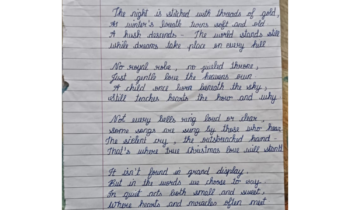 The night is stitched with threads of gold,
As winter's breath turns soft and old
A hush descends. The world stands still
while dreams take place on every hill
No royal robe, no gilded throne,
Just gentle love the heavens own
A child once born beneath the sky,
still teaches hearts the how and why
Not every bells ring loud or clear,
some songs are sung by those who hear
The silent cry, the outstretched hand
That's where true Christmas love will stand
It isn't found in grand display
But in the words we choose to say
In quiet acts both small and sweet,
Where hearts and miracles often meet